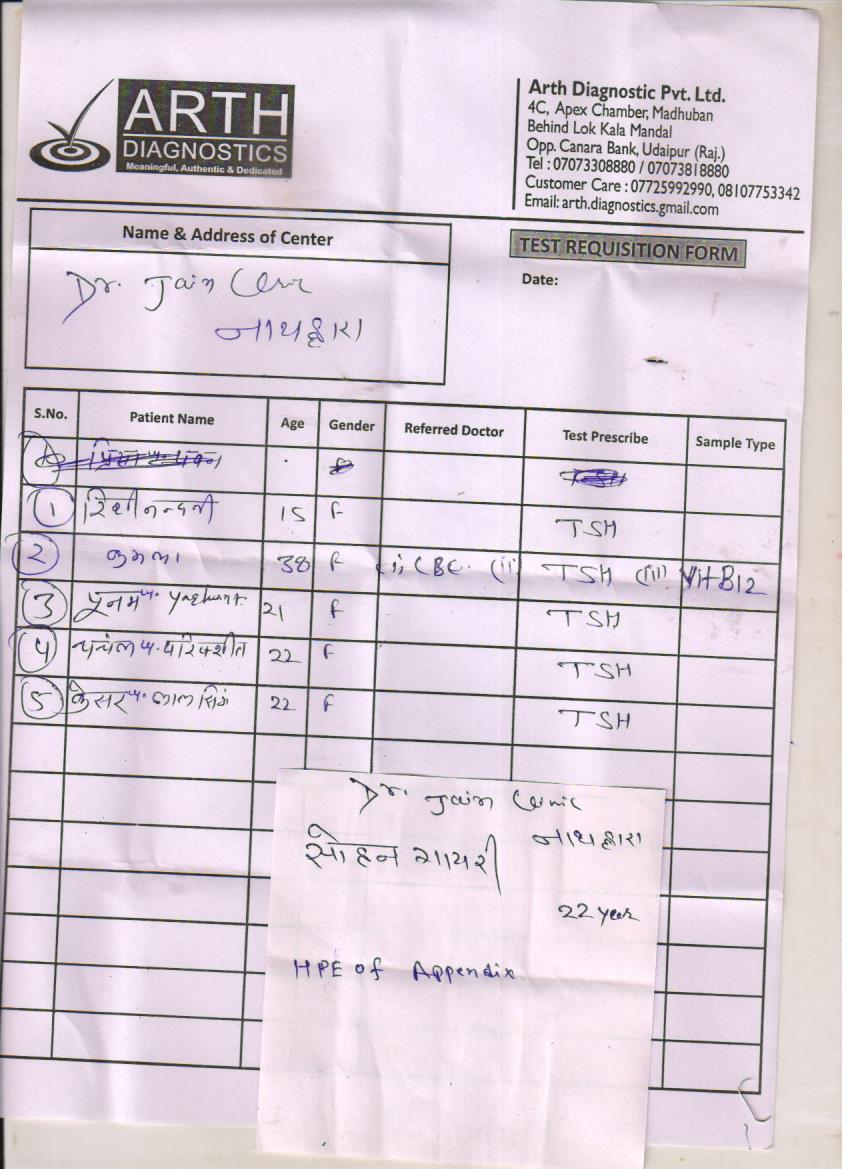 ARTH
DIAGNOSTICS
Meaningful, Authentic & Dedicated
Arth Diagnostic Pvt. Ltd.
4C, Apex Chamber, Madhuban
Behind Lok Kala Mandal
Opp. Canara Bank, Udaipur (Raj.)
Tel : 07073308880 / 07073818880
Customer Care : 07725992990, 08107753342
Email: arth.diagnostics.gmail.com
Name & Address of Center
TEST REQUISITION FORM
Date:
Dr. Jain
नाथद्वारा
S.No. Patient Name Age Gender Referred Doctor Test Prescribe Sample Type
1 15 F TSH
2 कमला 38 F (i) CBC (ii) TSH (iii) Vit B12
3 पुनम 21 F TSH
4 22 F TSH
5 केसर लाल सिंग 22 F TSH
Dr. Jain Clinic
नाथद्वारा
सोहन गायरी
22 year
HPE of Appendix